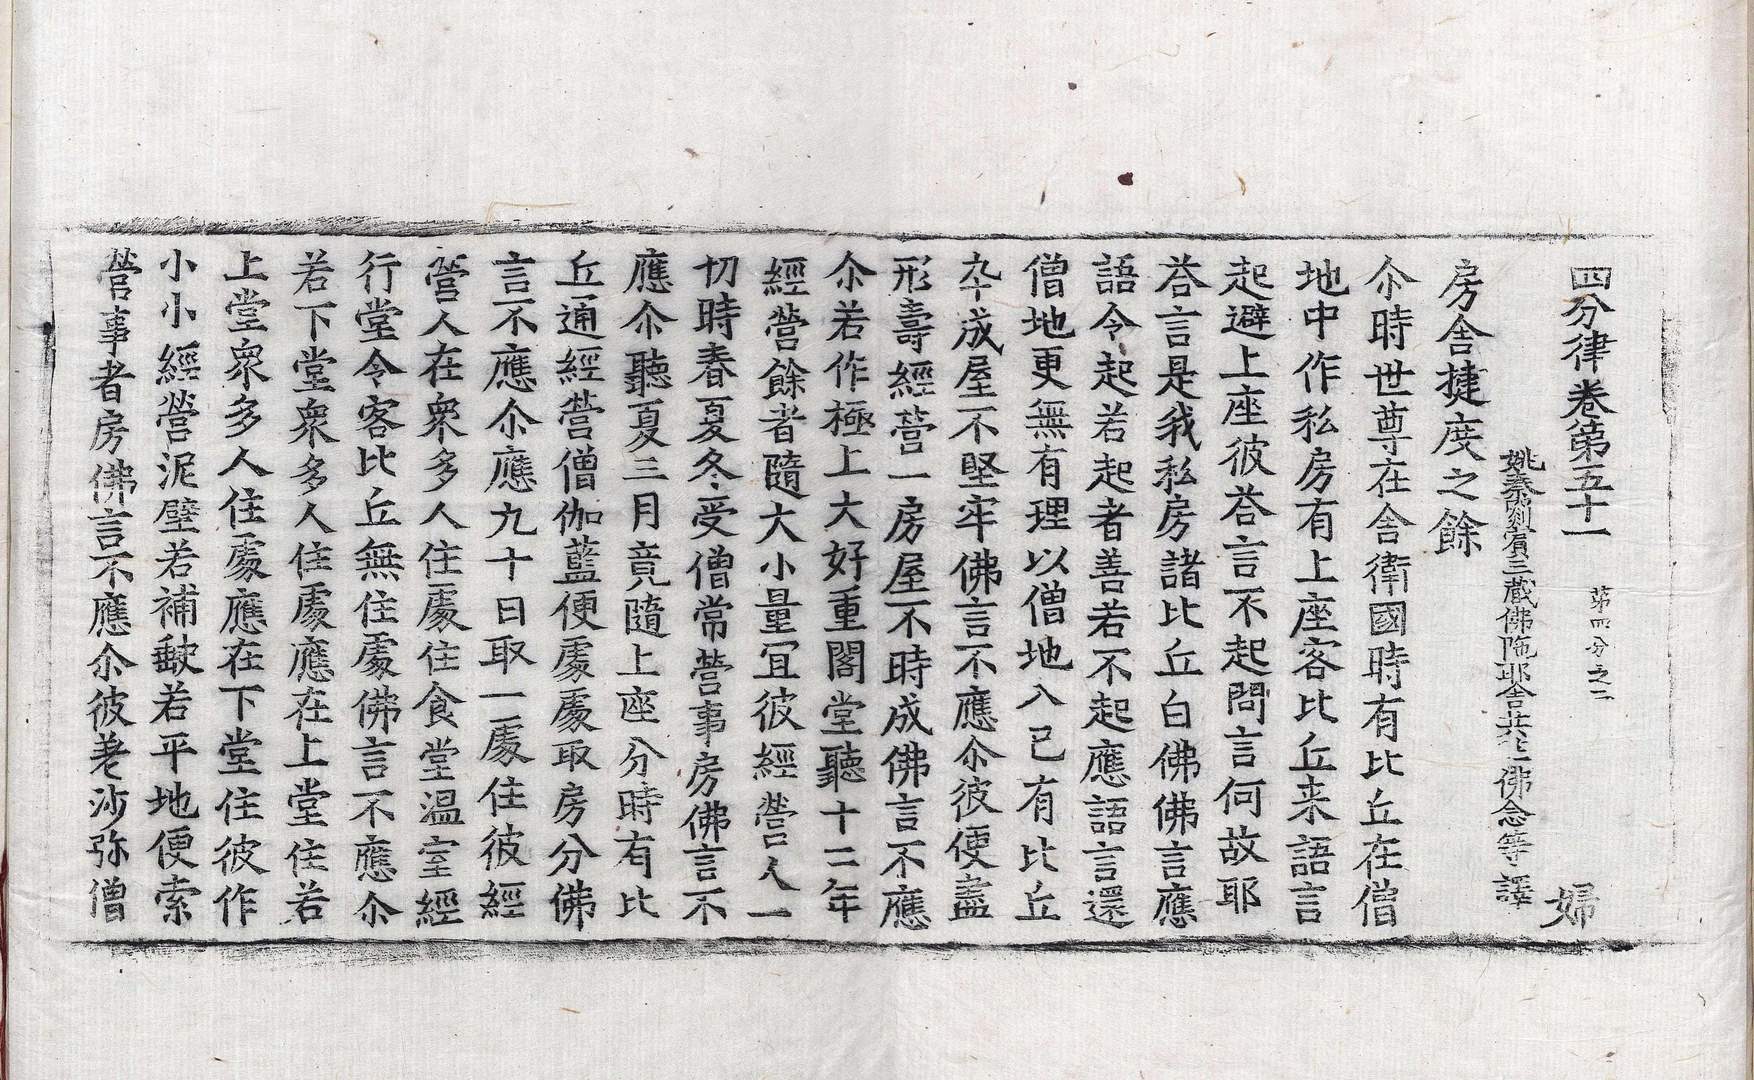 四分律卷第五十一 第四分之二 婦
姚秦罽賓三藏佛陁耶舍共竺佛念等譯
房舍揵度之餘
尒時世尊在舍衛國時有比丘在僧
地中作私房有上座客比丘来語言
起避上座彼荅言不起問言何故耶
荅言是我私房諸比丘白佛佛言應
語令起若起者善若不起應語言還
僧地更無有理以僧地入已有比丘
卒成屋不堅牢佛言不應尒彼便盡
形壽經營一房屋不時成佛言不應
尒若作極上大好重閣堂聽十二年
經營餘者隨大小量冝彼經營人一
切時春夏冬受僧常營事房佛言不
應尒聽夏三月竟隨上座分時有比
丘通經營僧伽藍便處處取房分佛
言不應尒應九十日取一處住彼經
營人在衆多人住處住食堂温室經
行堂令客比丘無住處佛言不應尒
若下堂衆多人住處應在上堂住若
上堂衆多人住處應在下堂住彼作
小小經營泥壁若補缺若平地便索
營事者房佛言不應尒彼差沙弥僧